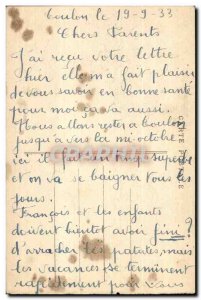 Toulon le 19-9-33
Chers Parents
J'ai reçu votre lettre
hier elle m'a fait plaisir
de vous savoir en bonne santé
pour moi ça va aussi.
Nous allons rester a Toulon
jusqu'a vers la mi-octobre
ici il fait un temps superbe
et on va se baigner tous les
jours.
François et les enfants
doivent bientot avoir fini ?
d'arracher les patates, mais
les vacances se terminent
rapidement pour vous
CARTE POSTALE